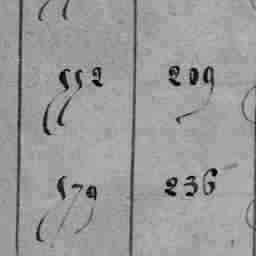 552 209
579 236